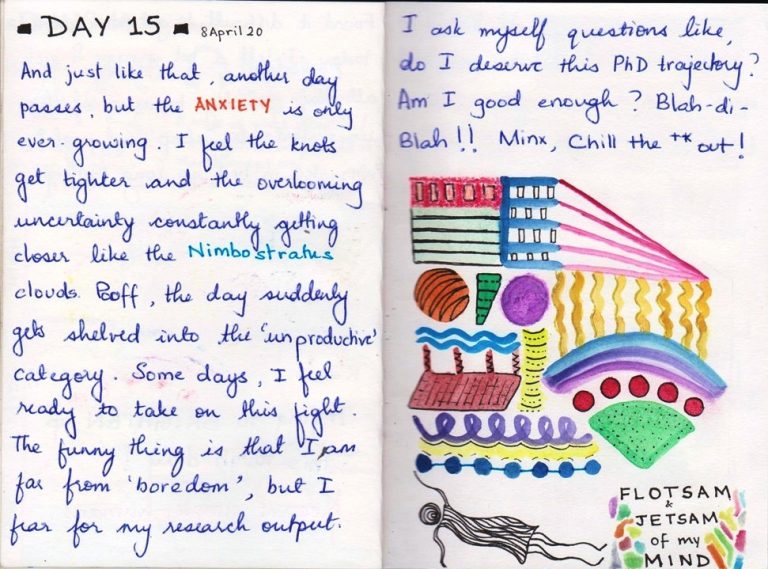 DAY 15 8 April 20
And just like that, another day
passes, but the ANXIETY is only
ever-growing. I feel the knots
get tighter and the overlooming
uncertainty constantly getting
closer like the Nimbostratus
clouds. Pooff, the day suddenly
gets shelved into the 'unproductive'
category. Some days, I feel
ready to take on this fight.
The funny thing is that I am
far from 'boredom', but I
fear for my research output.
I ask myself questions like,
do I deserve this PhD trajectory?
Am I good enough? Blah-di-
Blah!! Minx, Chill the ** out!
FLOTSAM
&
JETSAM
of my
MIND